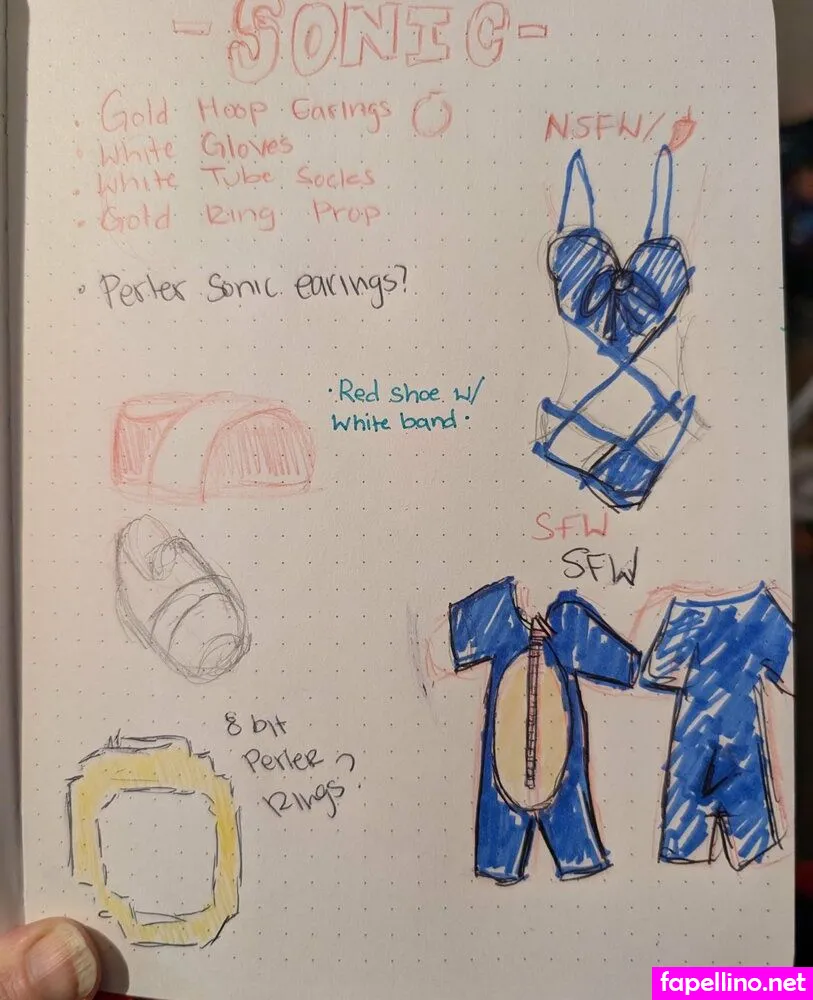 - SONIC -
· Gold Hoop Earings
· White Gloves
· White Tube Socks
· Gold Ring Prop
· Perler Sonic earings?
NSFW/
· Red shoe w/
white band ·
SFW
SFW
8 bit
Perler
Rings?
fapellino.net